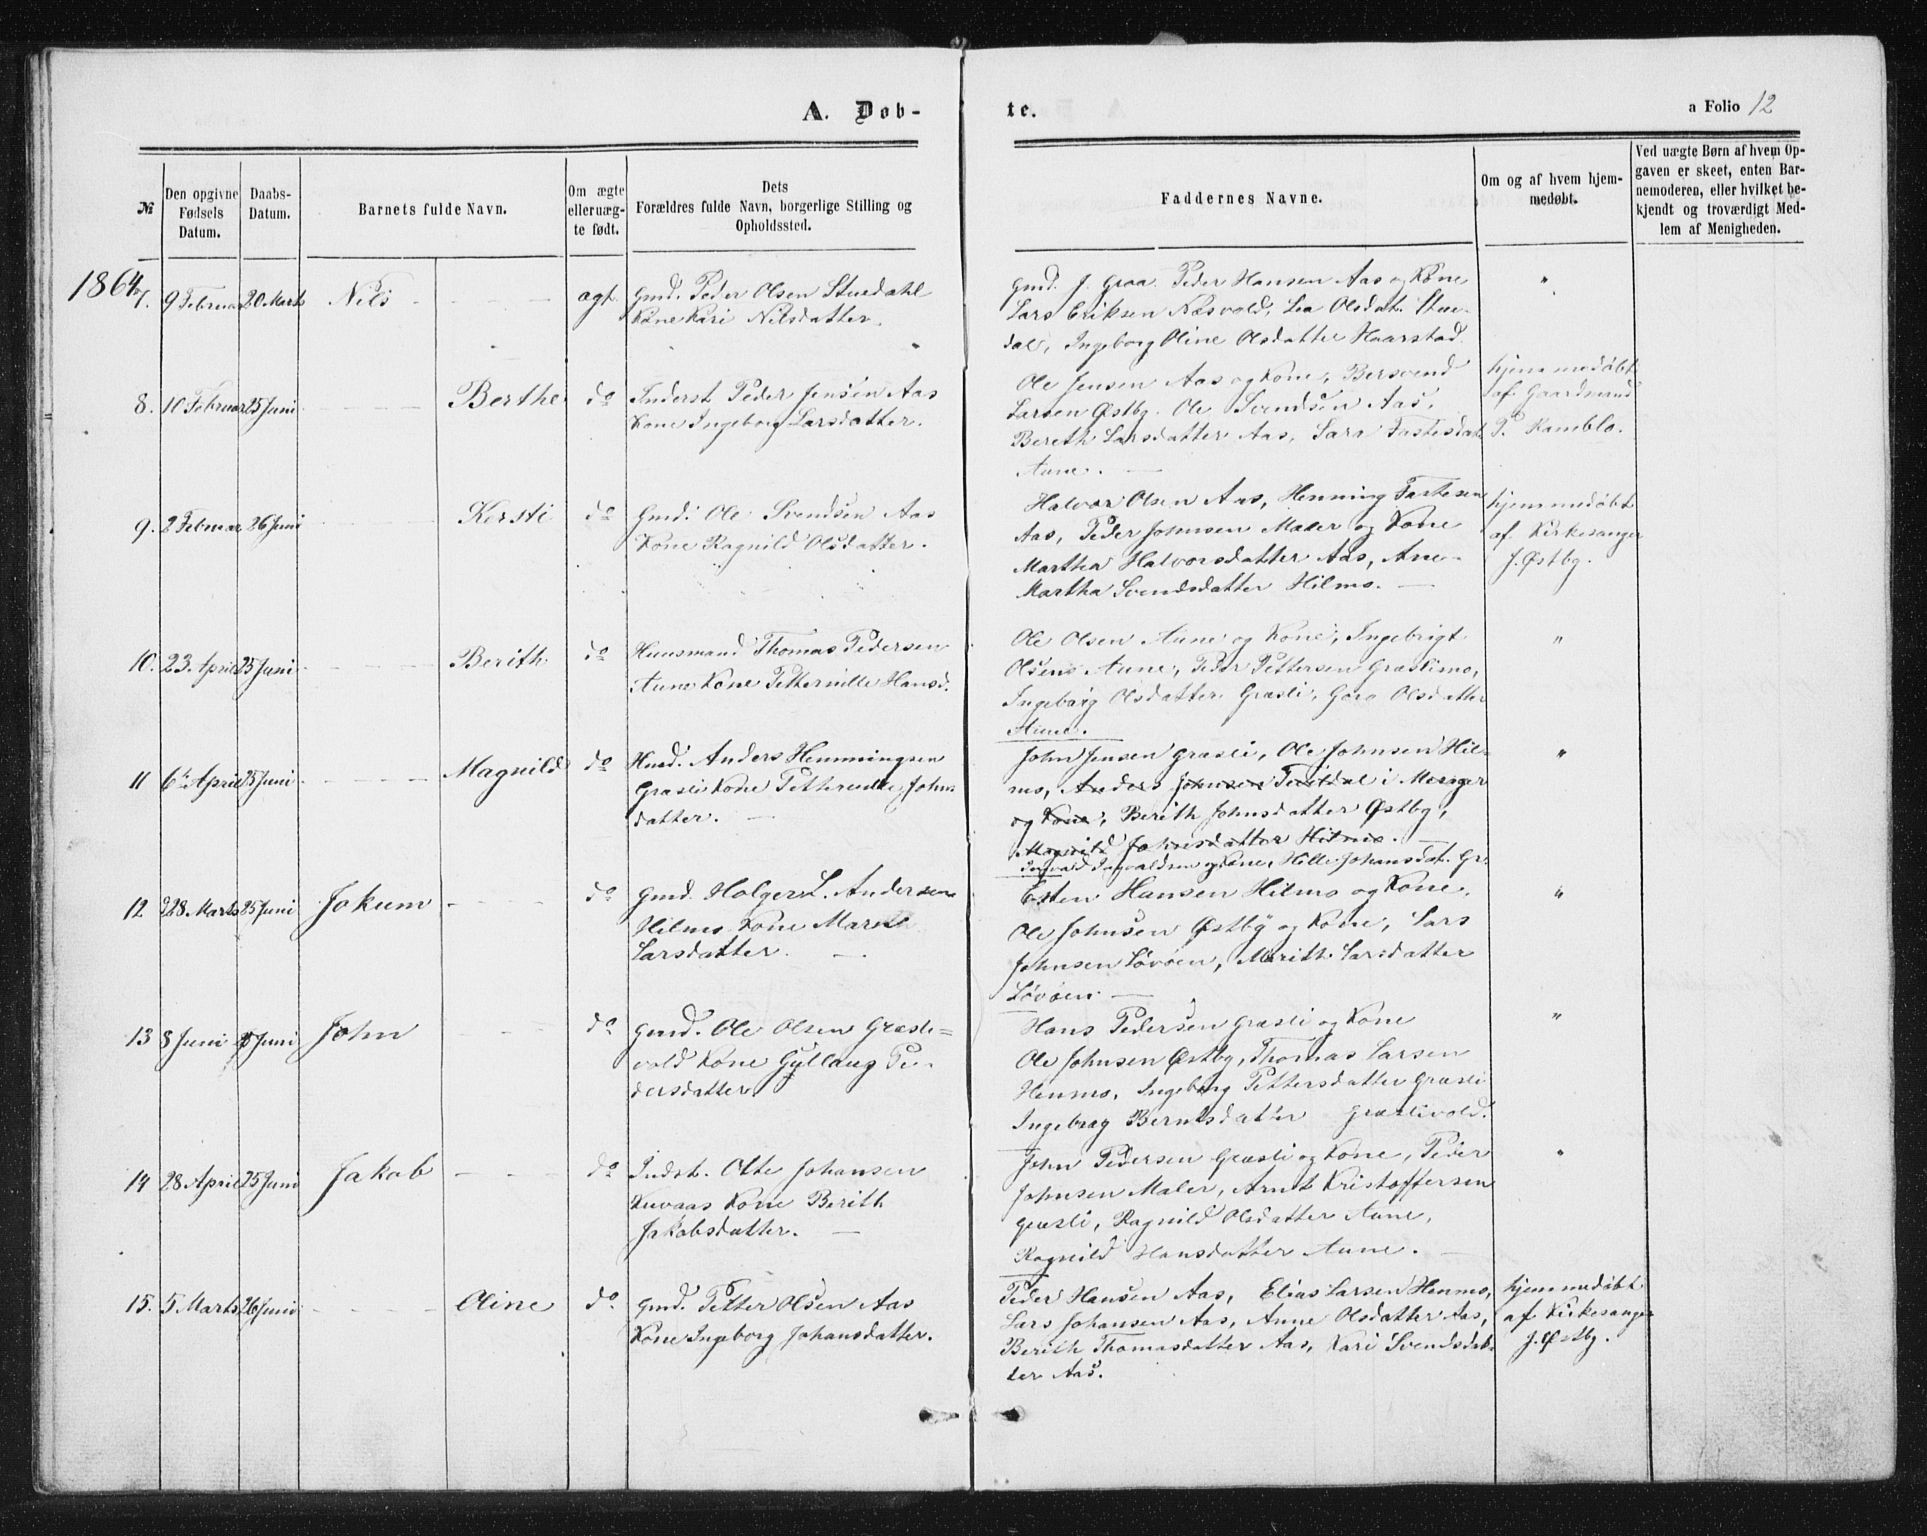 A. Døb-
te.
a Folio 12
№
Den opgivne Fødsels Datum.
Daabs-Datum.
Barnets fulde Navn.
Om ægte eller uæg-te født.
Dets Forældres fulde Navn, borgerlige Stilling og Opholdssted.
Faddernes Navne.
Om og af hvem hjem-medøbt.
Ved uægte Børn af hvem Op-gaven er skeet, enten Bar-nemoderen, eller hvilket be-kjendt og troværdigt Med-lem af Menigheden.
1864
7. 9 Februar 20 Marts Nils ægt.
Gmd. Peder Olsen Stuedahl
Kone Kari Nilsdatter.
Gmd. J. Graa. Peder Hansen Aas og Kone
Lars Eriksen Næsvold, Lea Olsdat. Stue-
dal, Ingeborg Oline Olsdatter Haarstad.
"
8. 10 Februar 25 Juni Berthe do
Inderst Peder Jensen Aas
Kone Ingeborg Larsdatter.
Ole Jensen Aas og Kone, Bersvend
Larsen Østby. Ole Svendsen Aas,
Bereth Larsdatter Aas, Sara Fastesdat.
Aune.
hjemmedøbt
af Gaardmand
P. Kamblo.
9. 2 Februar 26 Juni Kersti do
Gmd. Ole Svendsen Aas
Kone Ragnild Olsdatter.
Halvor Olsen Aas, Henning Fastesen
Aas, Peder Johnsen Maler og Kone
Martha Halvorsdatter Aas, Ane
Martha Svendsdatter Hilmo.
hjemmedøbt
af Kirkesanger
J. Østby.
10. 23 April 25 Juni Berith do
Huusmand Thomas Pedersen
Aune Kone Petternille Hansd.
Ole Olsen Aune og Kone, Ingebrigt
Olsen Aune, Peder Pettersen Græslimo,
Ingeborg Olsdatter Græsli, Goro Olsdatter
Aune.
"
11 6te April 25 Juni Magnild do
Husd. Anders Henningsen
Græsli Kone Petternille John
datter.
John Jensen Græsli, Ole Johnsen Hil-
mo, Anders Johnsen i Merager
og Kone, Berith Johnsdatter Østby,
Magnild Johnsdatter Hilmo.
Ingvald Ingvaldsen og Kone, Hille Johansdat. Gr.
"
12 28 Marts 25 Juni Jokum do
Gmd. Holger L. Andersen
Hilmo Kone Maret
Larsdatter.
Esten Hansen Hilmo og Kone,
Ole Johnsen Østby og Kone, Lars
Johnsen Løvøen, Marith Larsdatter
Løvøen.
"
13 8 Juni Juni John do
Gmd. Ole Olsen Græsli=
vold Kone Gyllaug Pe-
dersdatter
Hans Pedersen Græsli og Kone
Ole Johnsen Østby, Thomas Larsen
Henmo, Ingeborg Pettersdatter Græsli
Ingebrog Berntsdatter Græslivold.
"
14 28 April 25 Juni Jakob do
Indst. Otte Johansen
Kuvaas Kone Berith
Jakobsdatter.
John Pedersen Græsli og Kone, Peder
Johnsen Maler, Arnt Kristoffersen
Græsli, Ragnild Olsdatter Aune,
Ragnild Hansdatter Aune.
"
15. 5 Marts 26 Juni Oline do
Gmd. Petter Olsen Aas
Kone Ingeborg Johansdatter.
Peder Hansen Aas, Elias Larsen Henmo,
Lars Johansen Aas, Anne Olsdatter Aas,
Berith Thomasdatter Aas, Kari Svendsdat-
ter Aas.
hjemmedøbt
af Kirkesanger
J. Østby.